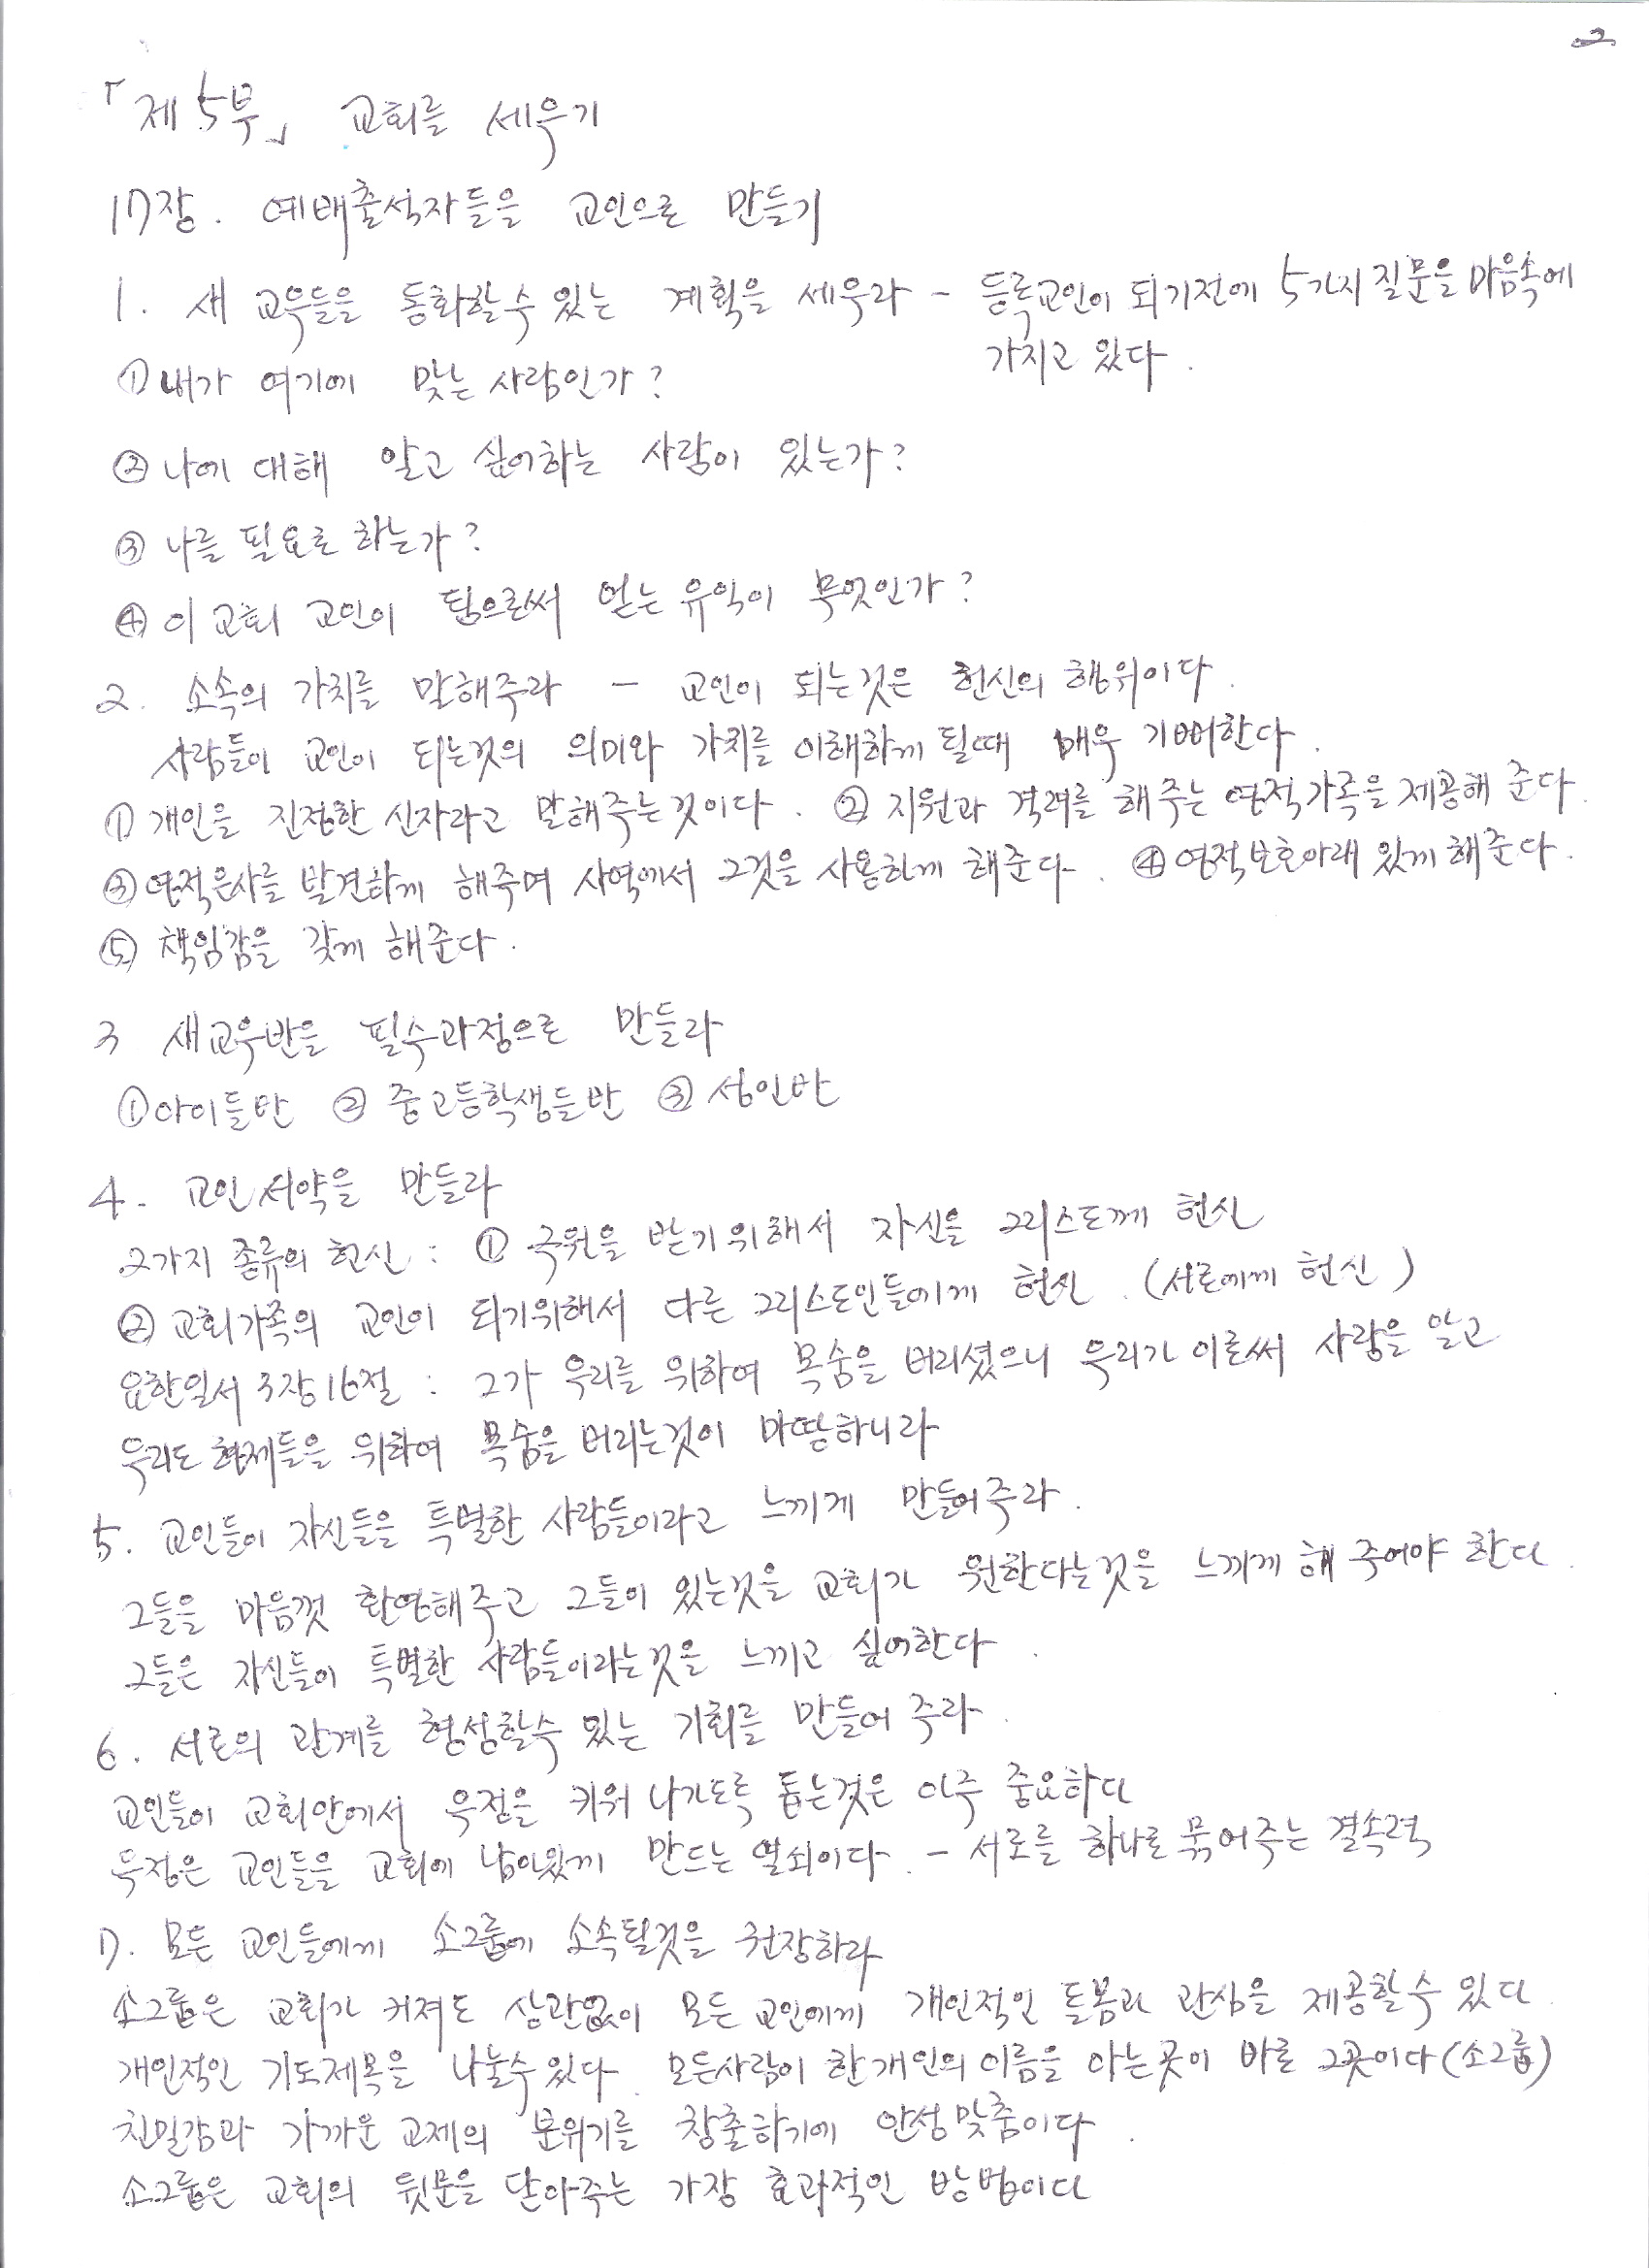 2
「제5부」 교회를 세우기
17장. 예배출석자들을 교인으로 만들기
1. 새 교우들을 동화할수 있는 계획을 세우라 - 등록교인이 되기전에 5가지 질문을 마음속에
가지고 있다.
① 내가 여기에 맞는 사람인가?
② 나에 대해 알고 싶어하는 사람이 있는가?
③ 나를 필요로 하는가?
④ 이 교회 교인이 됨으로써 얻는 유익이 무엇인가?
2. 소속의 가치를 말해주라 - 교인이 되는것은 헌신의 행위이다.
사람들이 교인이 되는것의 의미와 가치를 이해하게 될때 매우 기뻐한다.
① 개인을 진정한 신자라고 말해주는것이다. ② 지원과 격려를 해주는 영적가족을 제공해 준다.
③ 영적은사를 발견하게 해주며 사역에서 그것을 사용하게 해준다. ④ 영적보호아래 있게 해준다.
⑤ 책임감을 갖게 해준다.
3 새교우반을 필수과정으로 만들라
① 아이들반 ② 중고등학생들반 ③ 성인반
4. 교인서약을 만들라
2가지 종류의 헌신 : ① 구원을 받기위해서 자신을 그리스도께 헌신
② 교회가족의 교인이 되기위해서 다른 그리스도인들에게 헌신. (서로에게 헌신)
요한일서 3장16절 : 그가 우리를 위하여 목숨을 버리셨으니 우리가 이로써 사랑을 알고
우리도 형제들을 위하여 목숨을 버리는것이 마땅하니라
5. 교인들이 자신들을 특별한 사람들이라고 느끼게 만들어주라.
그들을 마음껏 환영해주고 그들이 있는것을 교회가 원한다는것을 느끼게 해 주어야 한다.
그들은 자신들이 특별한 사람들이라는것을 느끼고 싶어한다.
6. 서로의 관계를 형성할수 있는 기회를 만들어 주라.
교인들이 교회안에서 우정을 키워 나가도록 돕는것은 아주 중요하다
우정은 교인들을 교회에 남아있게 만드는 열쇠이다. - 서로를 하나로 묶어주는 결속력
7. 모든 교인들에게 소그룹에 소속될것을 권장하라
소그룹은 교회가 커져도 상관없이 모든 교인에게 개인적인 돌봄과 관심을 제공할수 있다.
개인적인 기도제목을 나눌수있다. 모든사람이 한개인의 이름을 아는곳이 바로 그곳이다(소그룹)
친밀감과 가까운 교제의 분위기를 창출하기에 안성맞춤이다.
소그룹은 교회의 뒷문을 닫아주는 가장 효과적인 방법이다